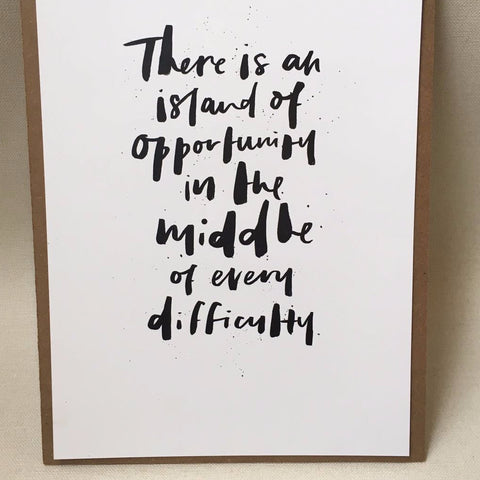 There is an
island of
opportunity
in the
middle
of every
difficulty.